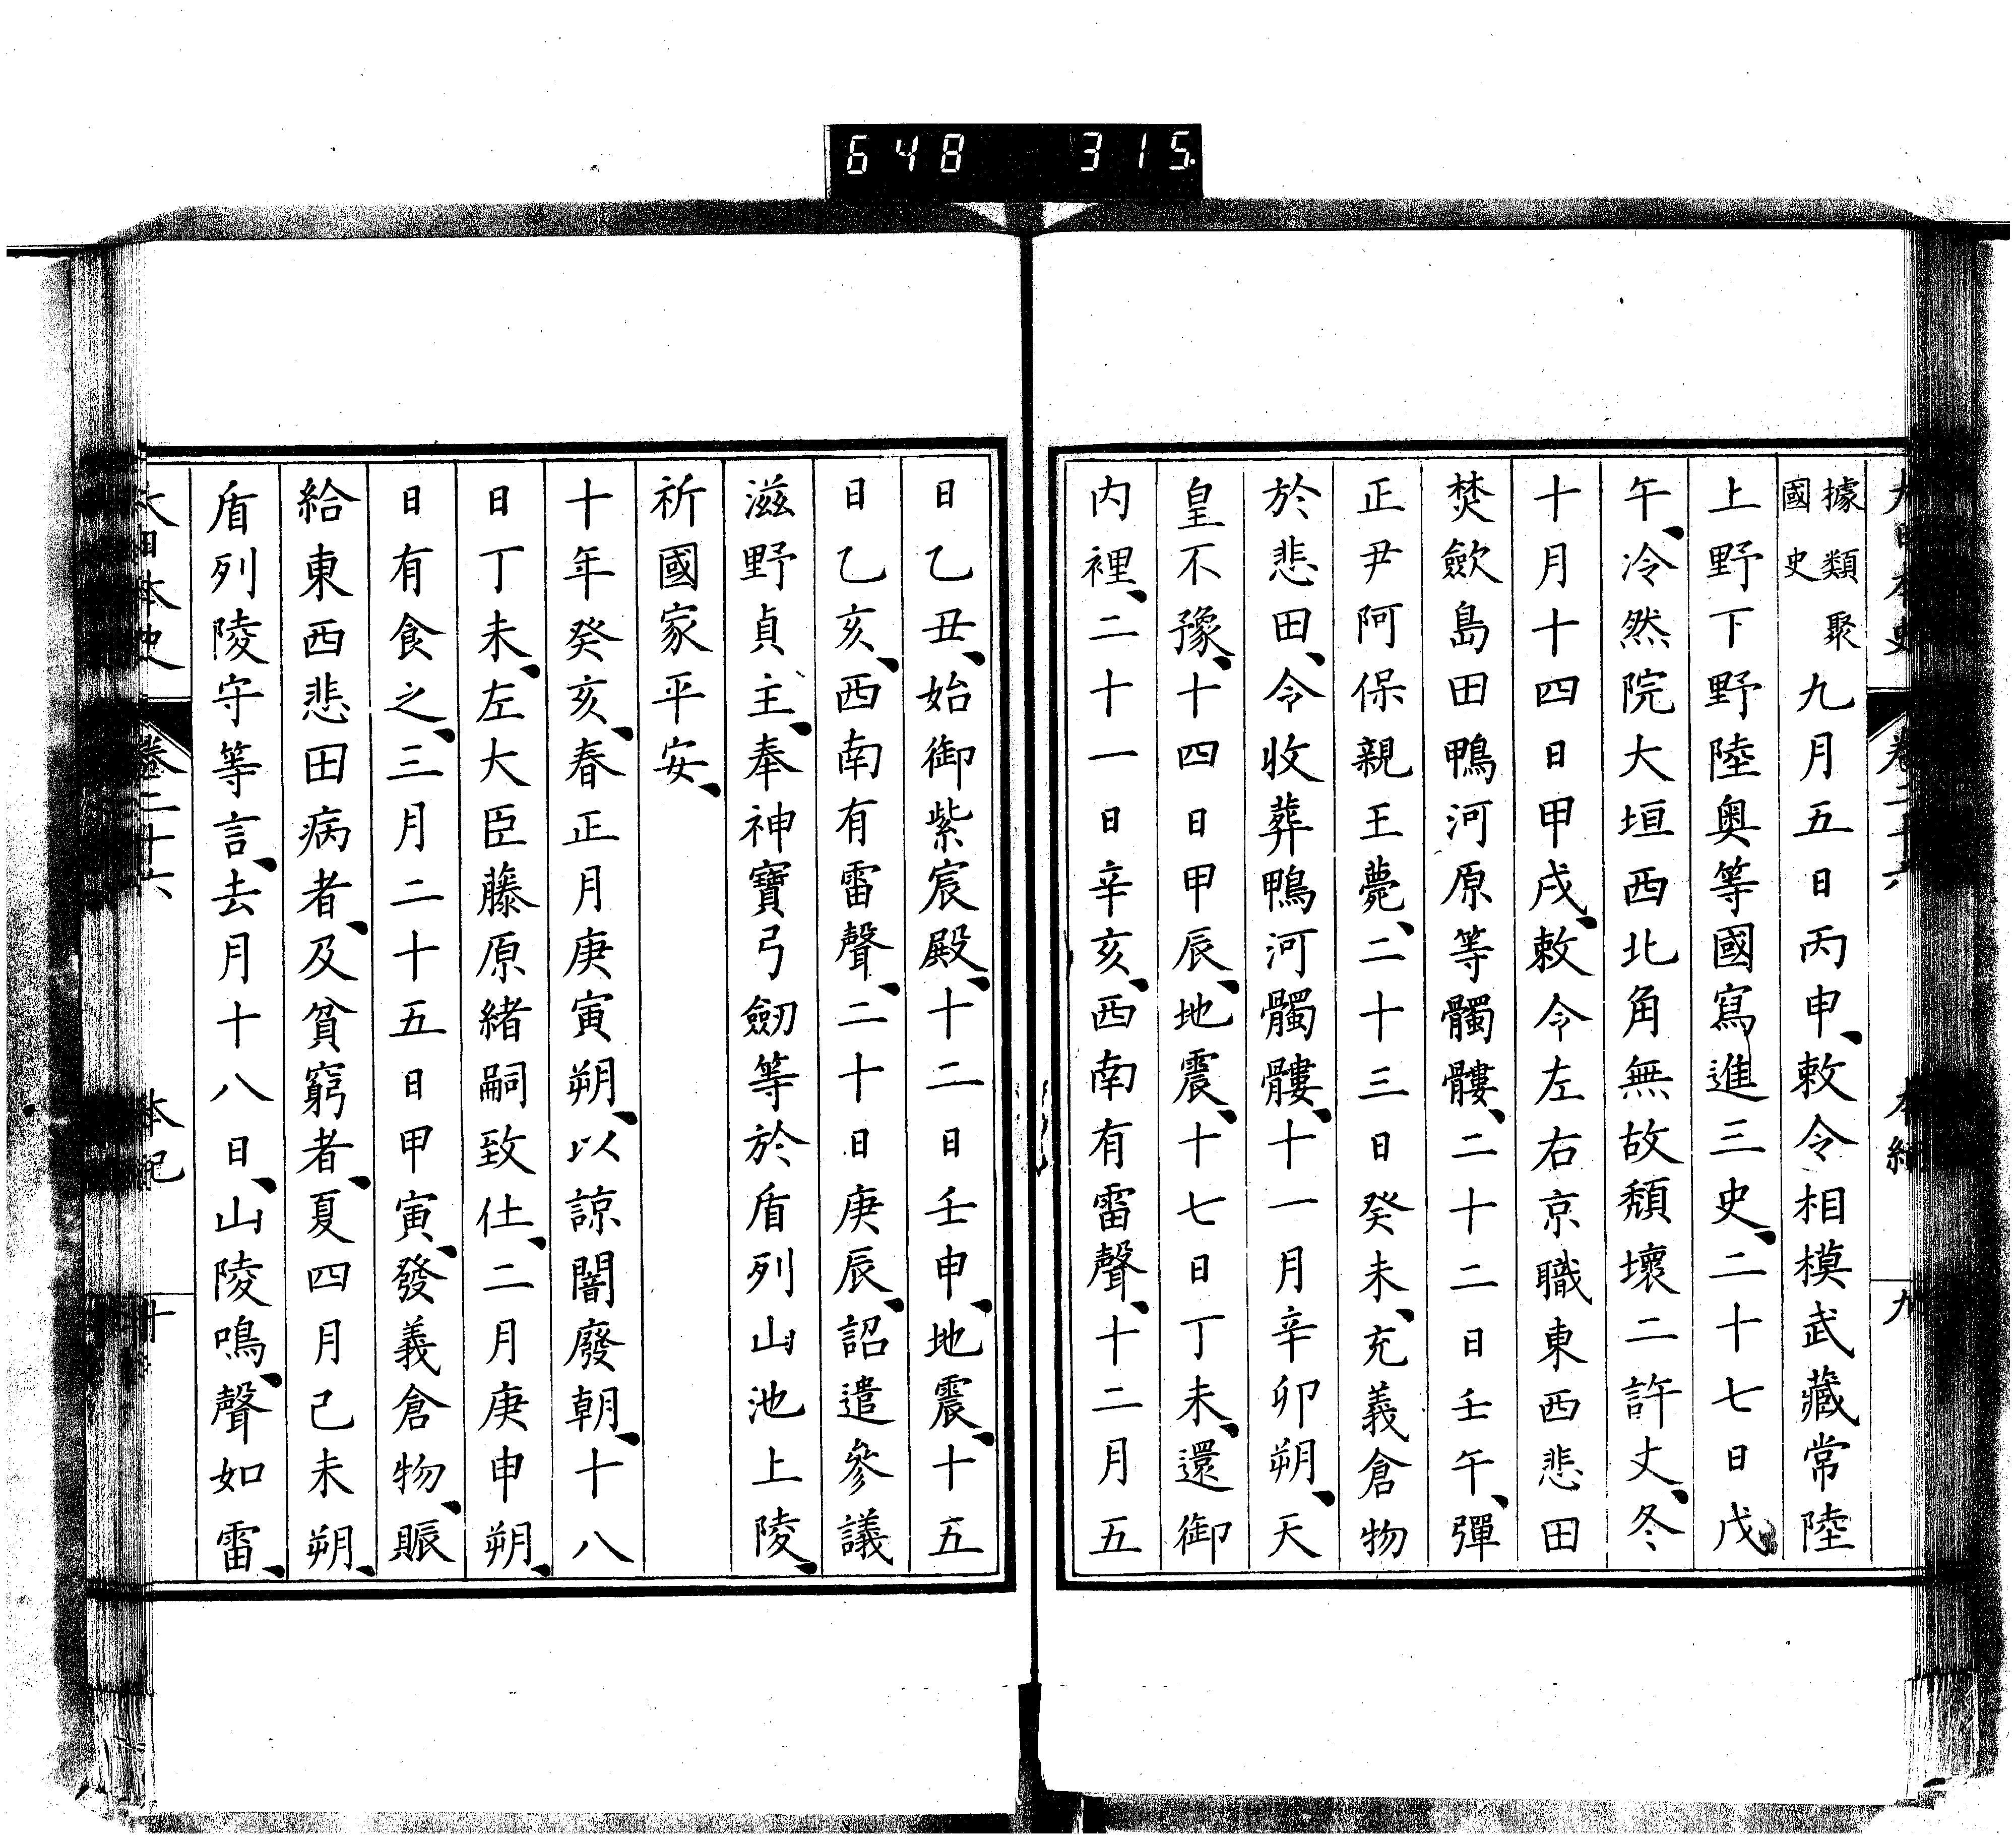 648 315
大日本史 卷二十六 本紀 九
據類聚國史九月五日丙申、敕令相模武藏常陸
上野下野陸奥等國寫進三史、二十七日戊
午、冷然院大垣西北角無故頽壞二許丈、冬
十月十四日甲戌、敕令左右京職東西悲田
焚斂島田鴨河原等髑髏、二十二日壬午、彈
正尹阿保親王薨、二十三日癸未、充義倉物
於悲田、令收葬鴨河髑髏、十一月辛卯朔、天
皇不豫、十四日甲辰、地震、十七日丁未、還御
内裡、二十一日辛亥、西南有雷聲、十二月五
日乙丑、始御紫宸殿、十二日壬申、地震、十五
日乙亥、西南有雷聲、二十日庚辰、詔遣參議
滋野貞主、奉神寶弓劒等於盾列山池上陵、
祈國家平安、
十年癸亥、春正月庚寅朔、以諒闇廢朝、十八
日丁未、左大臣藤原緒嗣致仕、二月庚申朔、
日有食之、三月二十五日甲寅、發義倉物、賑
給東西悲田病者、及貧窮者、夏四月己未朔、
盾列陵守等言、去月十八日、山陵鳴、聲如雷、
大日本史 卷二十六 本紀 十